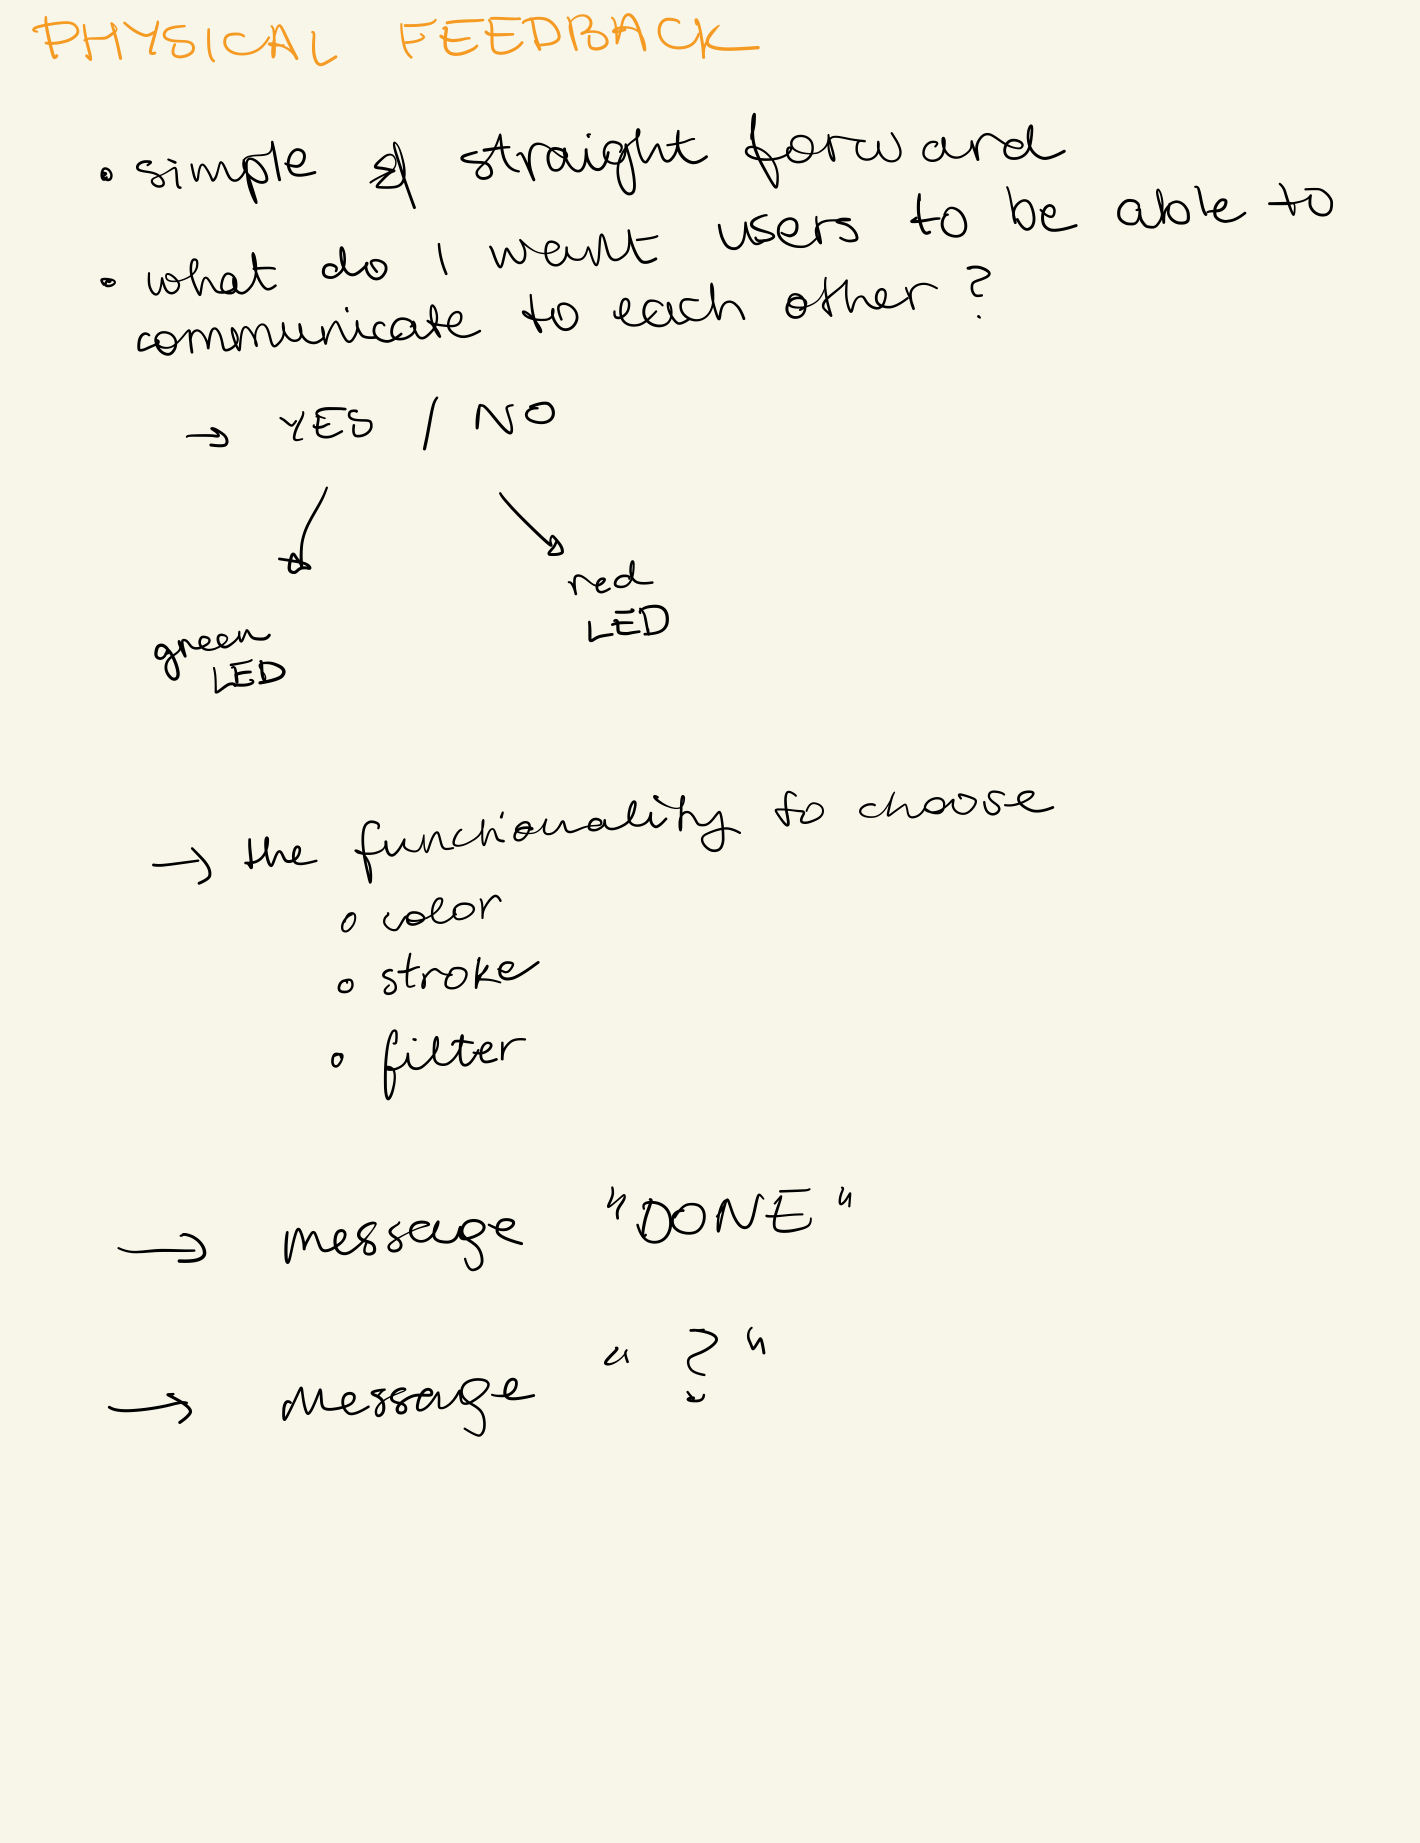 PHYSICAL FEEDBACK
• simple & straight forward
• what do I want users to be able to
communicate to each other?
→ YES / NO
red
LED
green
LED
→ the functionality to choose
• color
• stroke
• filter
→ message "DONE"
→ message "?"